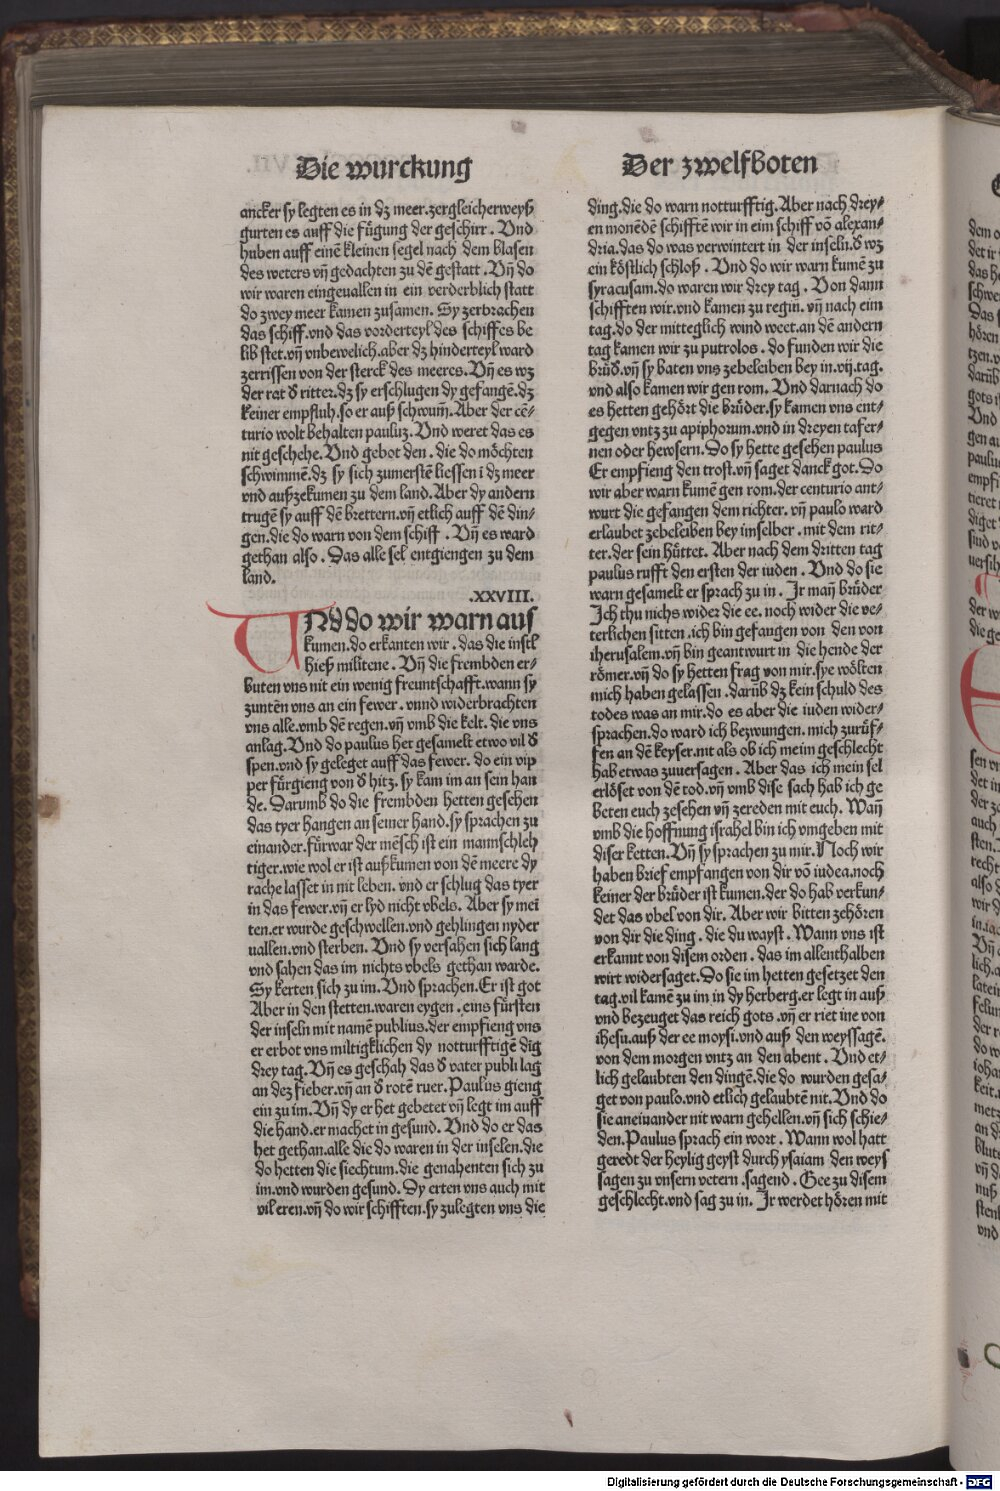 Die wurckung
Der zwelfboten
ancker sy legten es in dz meer. zergleicherweyß
gurten es auff die fůgung der geschirr. Vnd
huben auff einē kleinen segel nach dem blasen
des weters vn̄ gedachten zu dē gestatt. Vn̄ do
wir waren eingeuallen in ein verderblich statt
do zwey meer kamen zusamen. Sy zerbrachen
das schiff. vnd das vorderteyl des schiffes be
lib stet. vn̄ vnbewelich. aber dz hinderteyl ward
zerrissen von der sterck des meeres. Vn̄ es wz
der rat d̕ ritter. dz sy erschlugen dy gefangē. dz
keiner empfluh. so er auß schwum̄. Aber der cē-
turio wolt behalten pauluz. Vnd weret das es
nit geschehe. Vnd gebot den. die do möchten
schwimmē. dz sy sich zumerstē liessen ī dz meer
vnd außzekumen zu dem land. Aber dy andern
trugē sy auff dē brettern. vn̄ etlich auff dē din-
gen. die do warn von dem schiff. Vn̄ es ward
gethan also. Das alle sel entgiengen zu dem
land.
.XXVIII.
VNd do wir warn aus
kumen. do erkanten wir. das die insel
hieß militene. Vn̄ die frembden er-
buten vns nit ein wenig freuntschafft. wann sy
zuntēn vns an ein fewer. vnnd widerbrachten
vns alle. vmb dē regen. vn̄ vmb die kelt. die vns
anlag. Vnd do paulus het gesamelt etwo vil d̕
spen. vnd sy geleget auff das fewer. do ein vip
per fůrgieng von d̕ hitz. sy kam im an sein han
de. Darumb do die frembden hetten gesehen
das tyer hangen an seiner hand. sy sprachen zu
einander. fůrwar der mēsch ist ein mannschleh
tiger. wie wol er ist außkumen von dē meere dy
rache lasset in nit leben. vnd er schlug das tyer
in das fewer. vn̄ er lyd nicht vbels. Aber sy mei
ten. er wurde geschwellen. vnd gehlingen nyder
uallen. vnd sterben. Vnd sy versahen sich lang
vnd sahen das im nichts vbels gethan warde.
Sy kerten sich zu im. Vnd sprachen. Er ist got
Aber in den stetten. waren eygen. eins fůrsten
der inseln mit namē publius. der empfieng vns
er erbot vns miltigklichen dy notturfftigē dīg
drey tag. Vn̄ es geschah das d̕ vater publi lag
an dez fieber. vn̄ an d̕ rotē ruer. Paulus gieng
ein zu im. Vn̄ dy er het gebetet vn̄ legt im auff
die hand. er machet in gesund. Vnd do er das
het gethan. alle die do waren in der inselen. die
do hetten die siechtum. die genahenten sich zu
im. vnd wurden gesund. Dy erten vns auch mit
vil eren. vn̄ do wir schifften. sy zulegten vns die
ding. die do warn notturfftig. Aber nach drey-
en monēdē schifftē wir in eim schiff vō alexan-
dria. das do was verwintert in der inseln. d̕ wz
ein köstlich schloß. Vnd do wir warn kumē zu
syracusam. do waren wir drey tag. Von dann
schifften wir. vnd kamen zu regin. vn̄ nach eim
tag. do der mitteglich wind weet. an dē andern
tag kamen wir zu putrolos. do funden wir die
brůd̕. vn̄ sy baten vns zebeleiben bey in. vij. tag.
vnd also kamen wir gen rom. Vnd darnach do
es hetten gehört die brůder. sy kamen vns ent-
gegen vntz zu apiphorum. vnd in dreyen tafer-
nen oder hewsern. Do sy hette gesehen paulus
Er empfieng den trost. vn̄ saget danck got. Do
wir aber warn kumē gen rom. der centurio ant-
wurt die gefangen dem richter. vn̄ paulo ward
erlaubet zebeleiben bey imselber. mit dem rit-
ter. der sein hůttet. Aber nach dem dritten tag
paulus rufft den ersten der iuden. Vnd do sie
warn gesamelt er sprach zu in. Ir man̄ brůder
Ich thu nichs wider die ee. noch wider die ve-
terlichen sitten. ich bin gefangen von den von
iherusalem. vn̄ bin geantwurt in die hende der
römer. vn̄ do sy hetten frag von mir. sye wölten
mich haben gelassen. darůb dz kein schuld des
todes was an mir. do es aber die iuden wider-
sprachen. do ward ich bezwungen. mich zurůf-
fen an dē keyser. nit als ob ich meim geschlecht
hab etwas zuuersagen. Aber das ich mein sel
erlöset von dē tod. vn̄ vmb dise sach hab ich ge
beten euch zesehen vn̄ zereden mit euch. Wan̄
vmb die hoffnung israhel bin ich vmgeben mit
diser ketten. Vn̄ sy sprachen zu mir. Noch wir
haben brief empfangen von dir vō iudea. noch
keiner der brůder ist kumen. der do hab verkun-
det das vbel von dir. Aber wir bitten zehören
von dir die ding. die du wayst. Wann vns ist
erkannt von disem orden. das im allenthalben
wirt widersaget. Do sie im hetten gesetzet den
tag. vil kamē zu im in dy herberg. er legt in auß
vnd bezeuget das reich gots. vn̄ er riet ine von
ihesu. auß der ee moysi. vnd auß den weyssagē.
von dem morgen vntz an den abent. Vnd et-
lich gelaubten den dingē. die do wurden gesa-
get von paulo. vnd etlich gelaubtē nit. Vnd do
sie aneinander nit warn gehellen. vn̄ sich schie-
den. Paulus sprach ein wort. Wann wol hatt
geredt der heylig geyst durch ysaiam den weys
sagen zu vnsern vetern. sagend. Gee zu disem
geschlecht. vnd sag zu in. Ir werdet hören mit
Digitalisierung gefördert durch die Deutsche Forschungsgemeinschaft - DFG